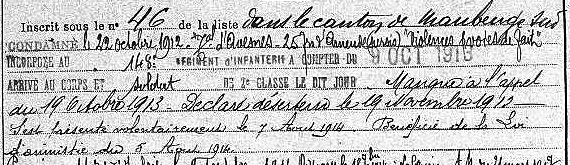 Inscrit sous le n° 46 de la liste dans le canton de Maubeuge Sud
CONDAMNÉ le 22 octobre 1912 d'Avesnes - 25 f d'amende "Violences et voies de fait"
INCORPORÉ AU 148e RÉGIMENT D'INFANTERIE A COMPTER DU 9 OCT 1913
ARRIVÉ AU CORPS ET soldat DE 2e CLASSE LE DIT JOUR Manqua à l'appel
du 19 Octobre 1913. Déclaré déserteur le 19 Novembre 1912
S'est présenté volontairement le 7 Aout 1914. Bénéficie de la Loi
d'amnistie du 5 Aout 1914